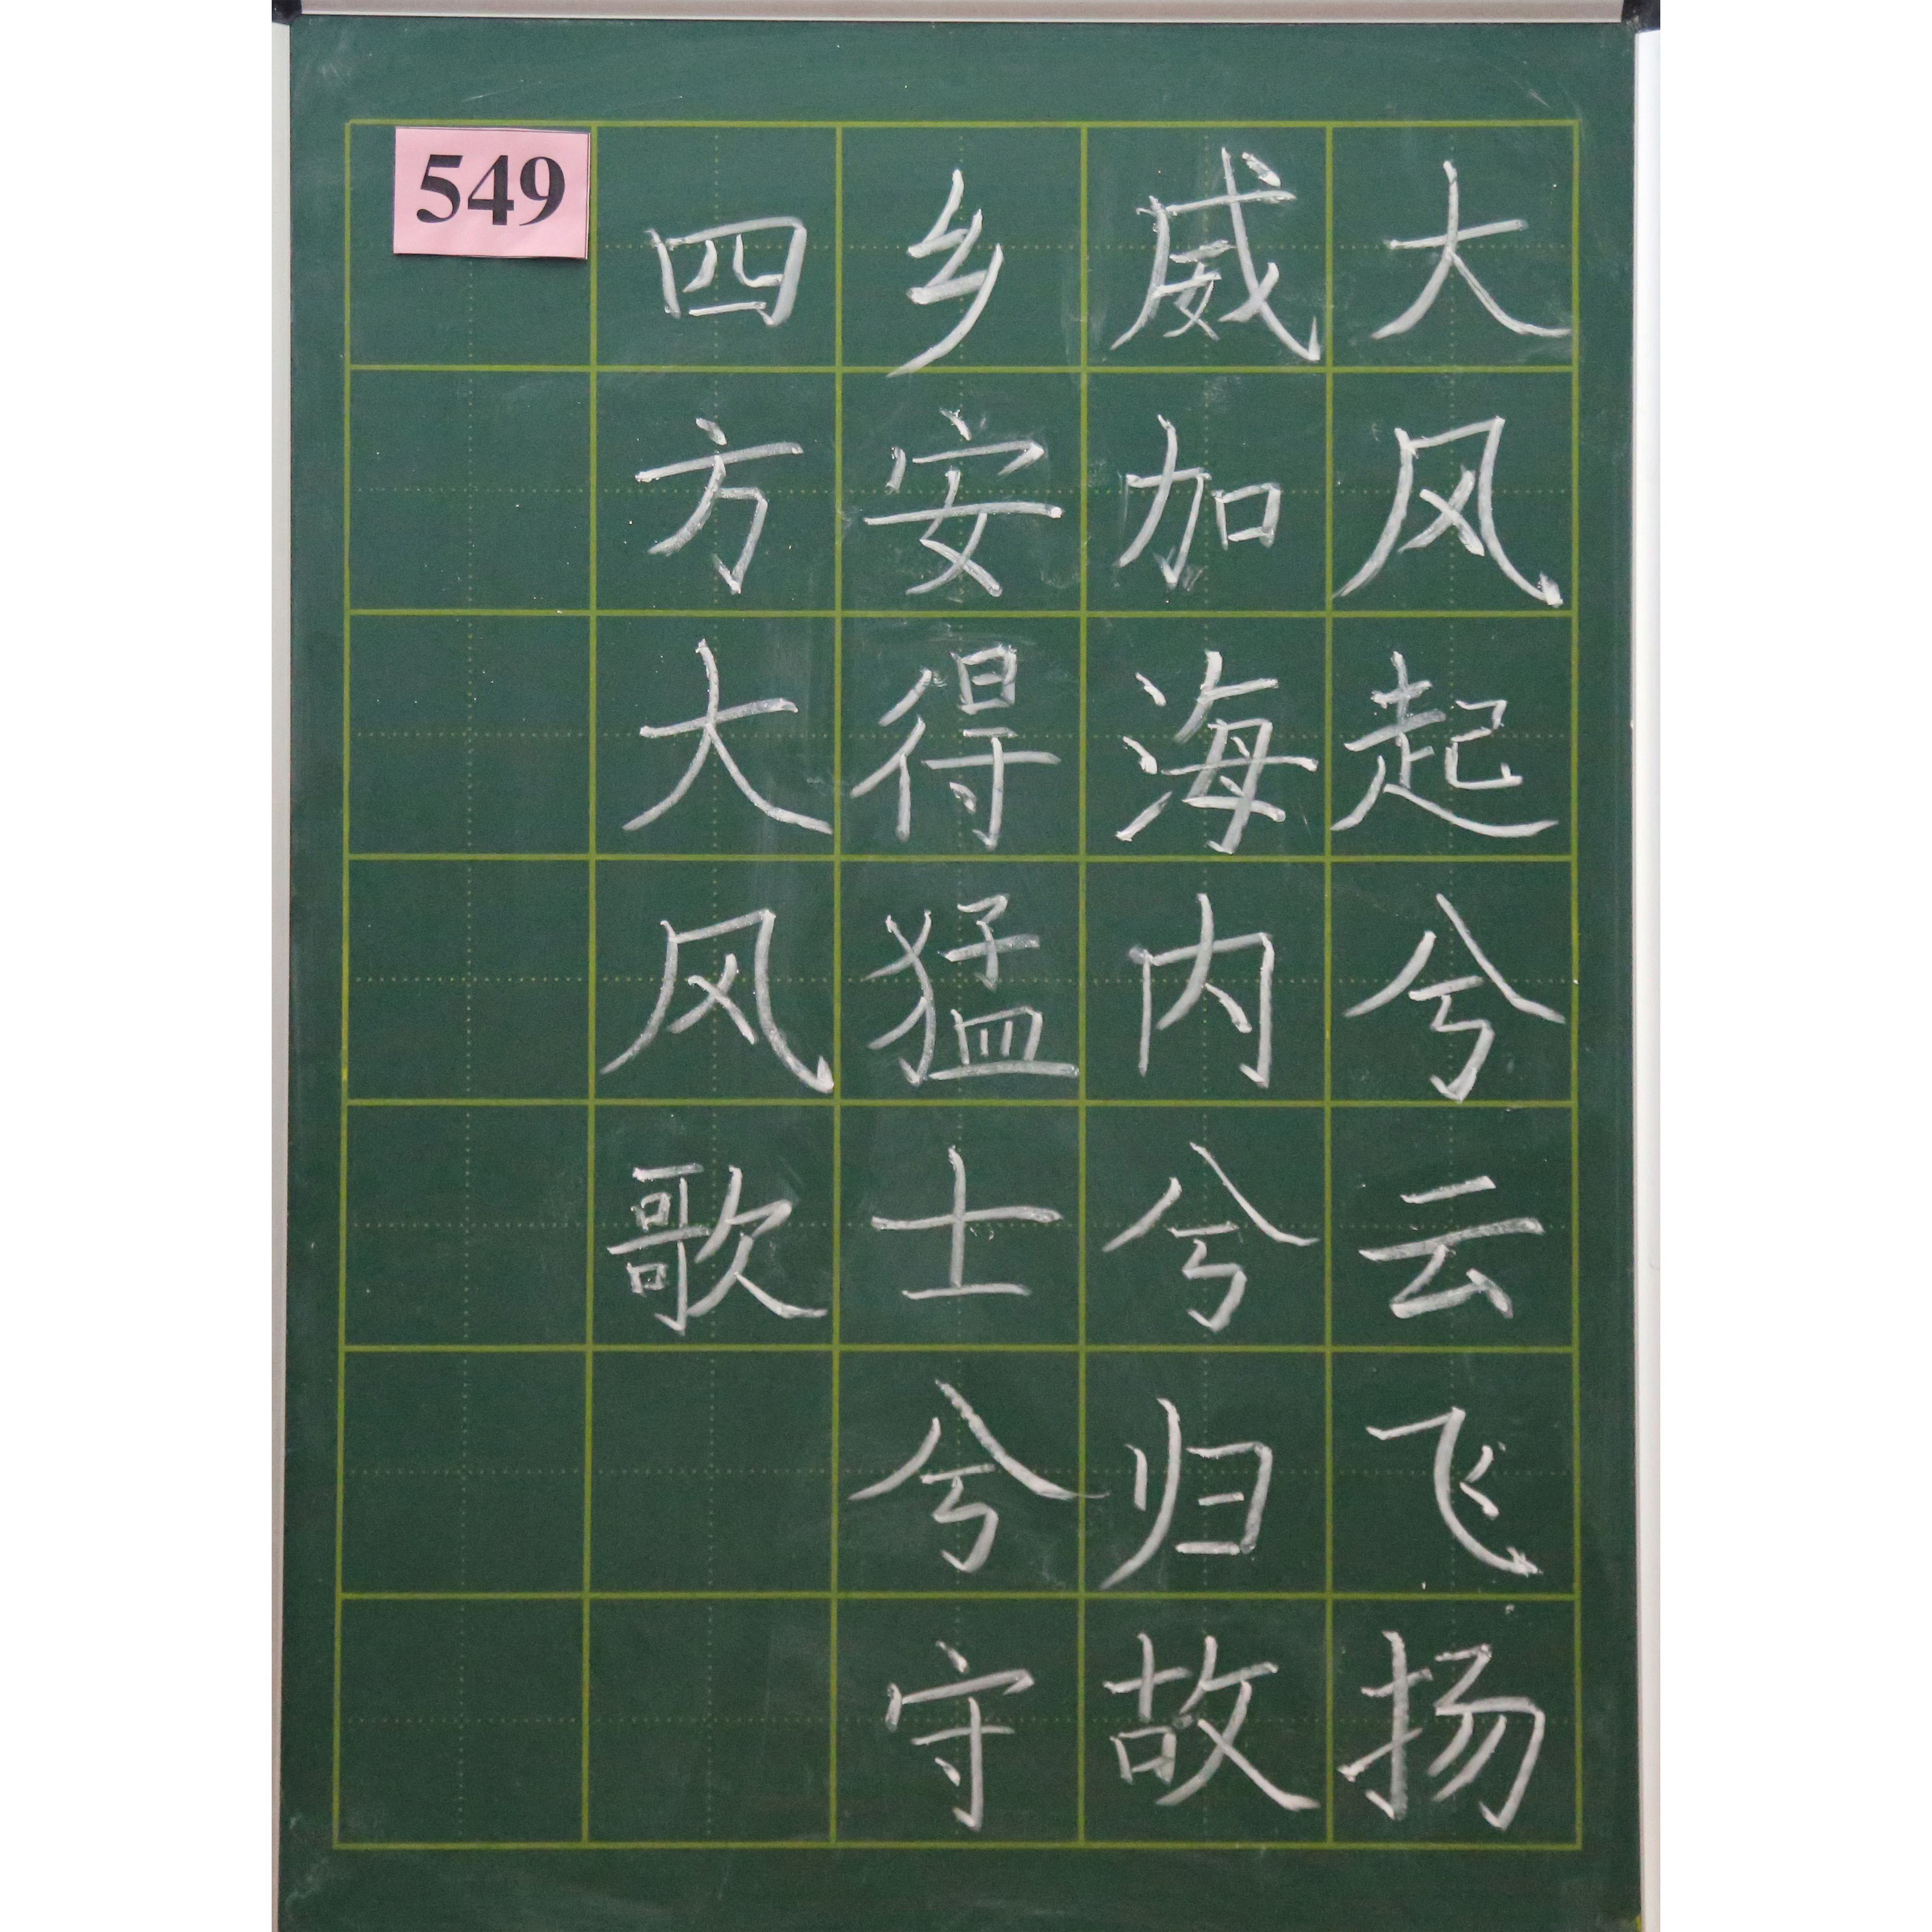 大风起兮云飞扬
威加海内兮归故
乡安得猛士兮守
四方大风歌
549